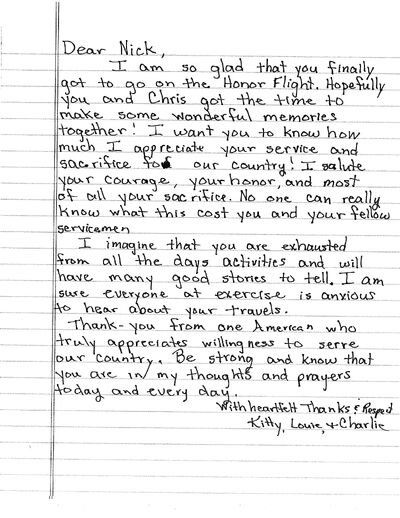 Dear Nick,
I am so glad that you finally
got to go on the Honor Flight. Hopefully
you and Chris got the time to
make some wonderful memories
together! I want you to know how
much I appreciate your service and
sacrifice for our country! I salute
your courage, your honor, and most
of all your sacrifice. No one can really
know what this cost you and your fellow
servicemen
I imagine that you are exhausted
from all the days activities and will
have many good stories to tell. I am
sure everyone at exercise is anxious
to hear about your travels.
Thank-you from one American who
truly appreciates willingness to serve
our country. Be strong and know that
you are in my thoughts and prayers
today and every day.
With heartfelt Thanks & Respect
Kitty, Louie, + Charlie